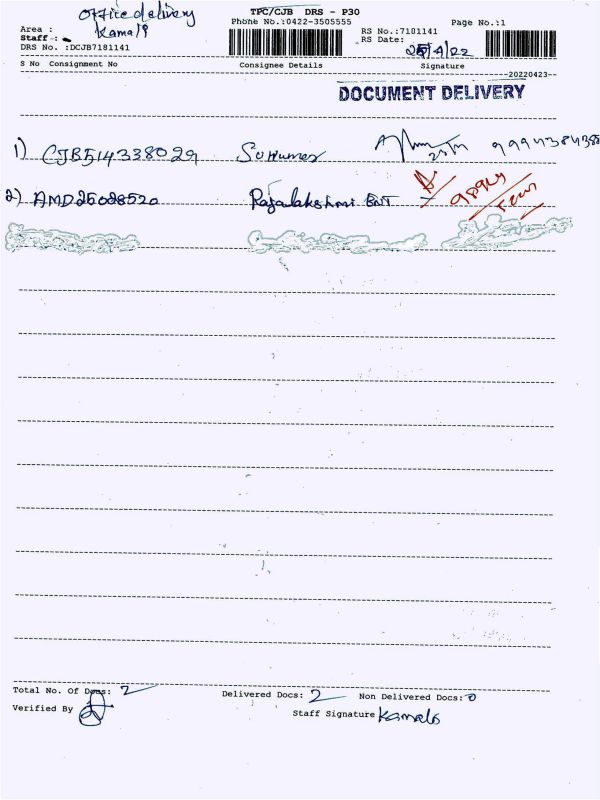 Office delivery
TPC/CJB DRS - P30
Area : Kamala
Phone No.:0422-3505555
Page No.:1
Staff :
RS No.:7101141
RS Date:
DRS No. :DCJB7181141
25/4/22
S No Consignment No Consignee Details Signature
--20220423--
DOCUMENT DELIVERY
1) CJB514338029 Sukumar
2) AMD25028520 Rajalakshmi
Total No. Of Docs: 2 Delivered Docs: 2 Non Delivered Docs: 0
Verified By
Staff Signature Kamala